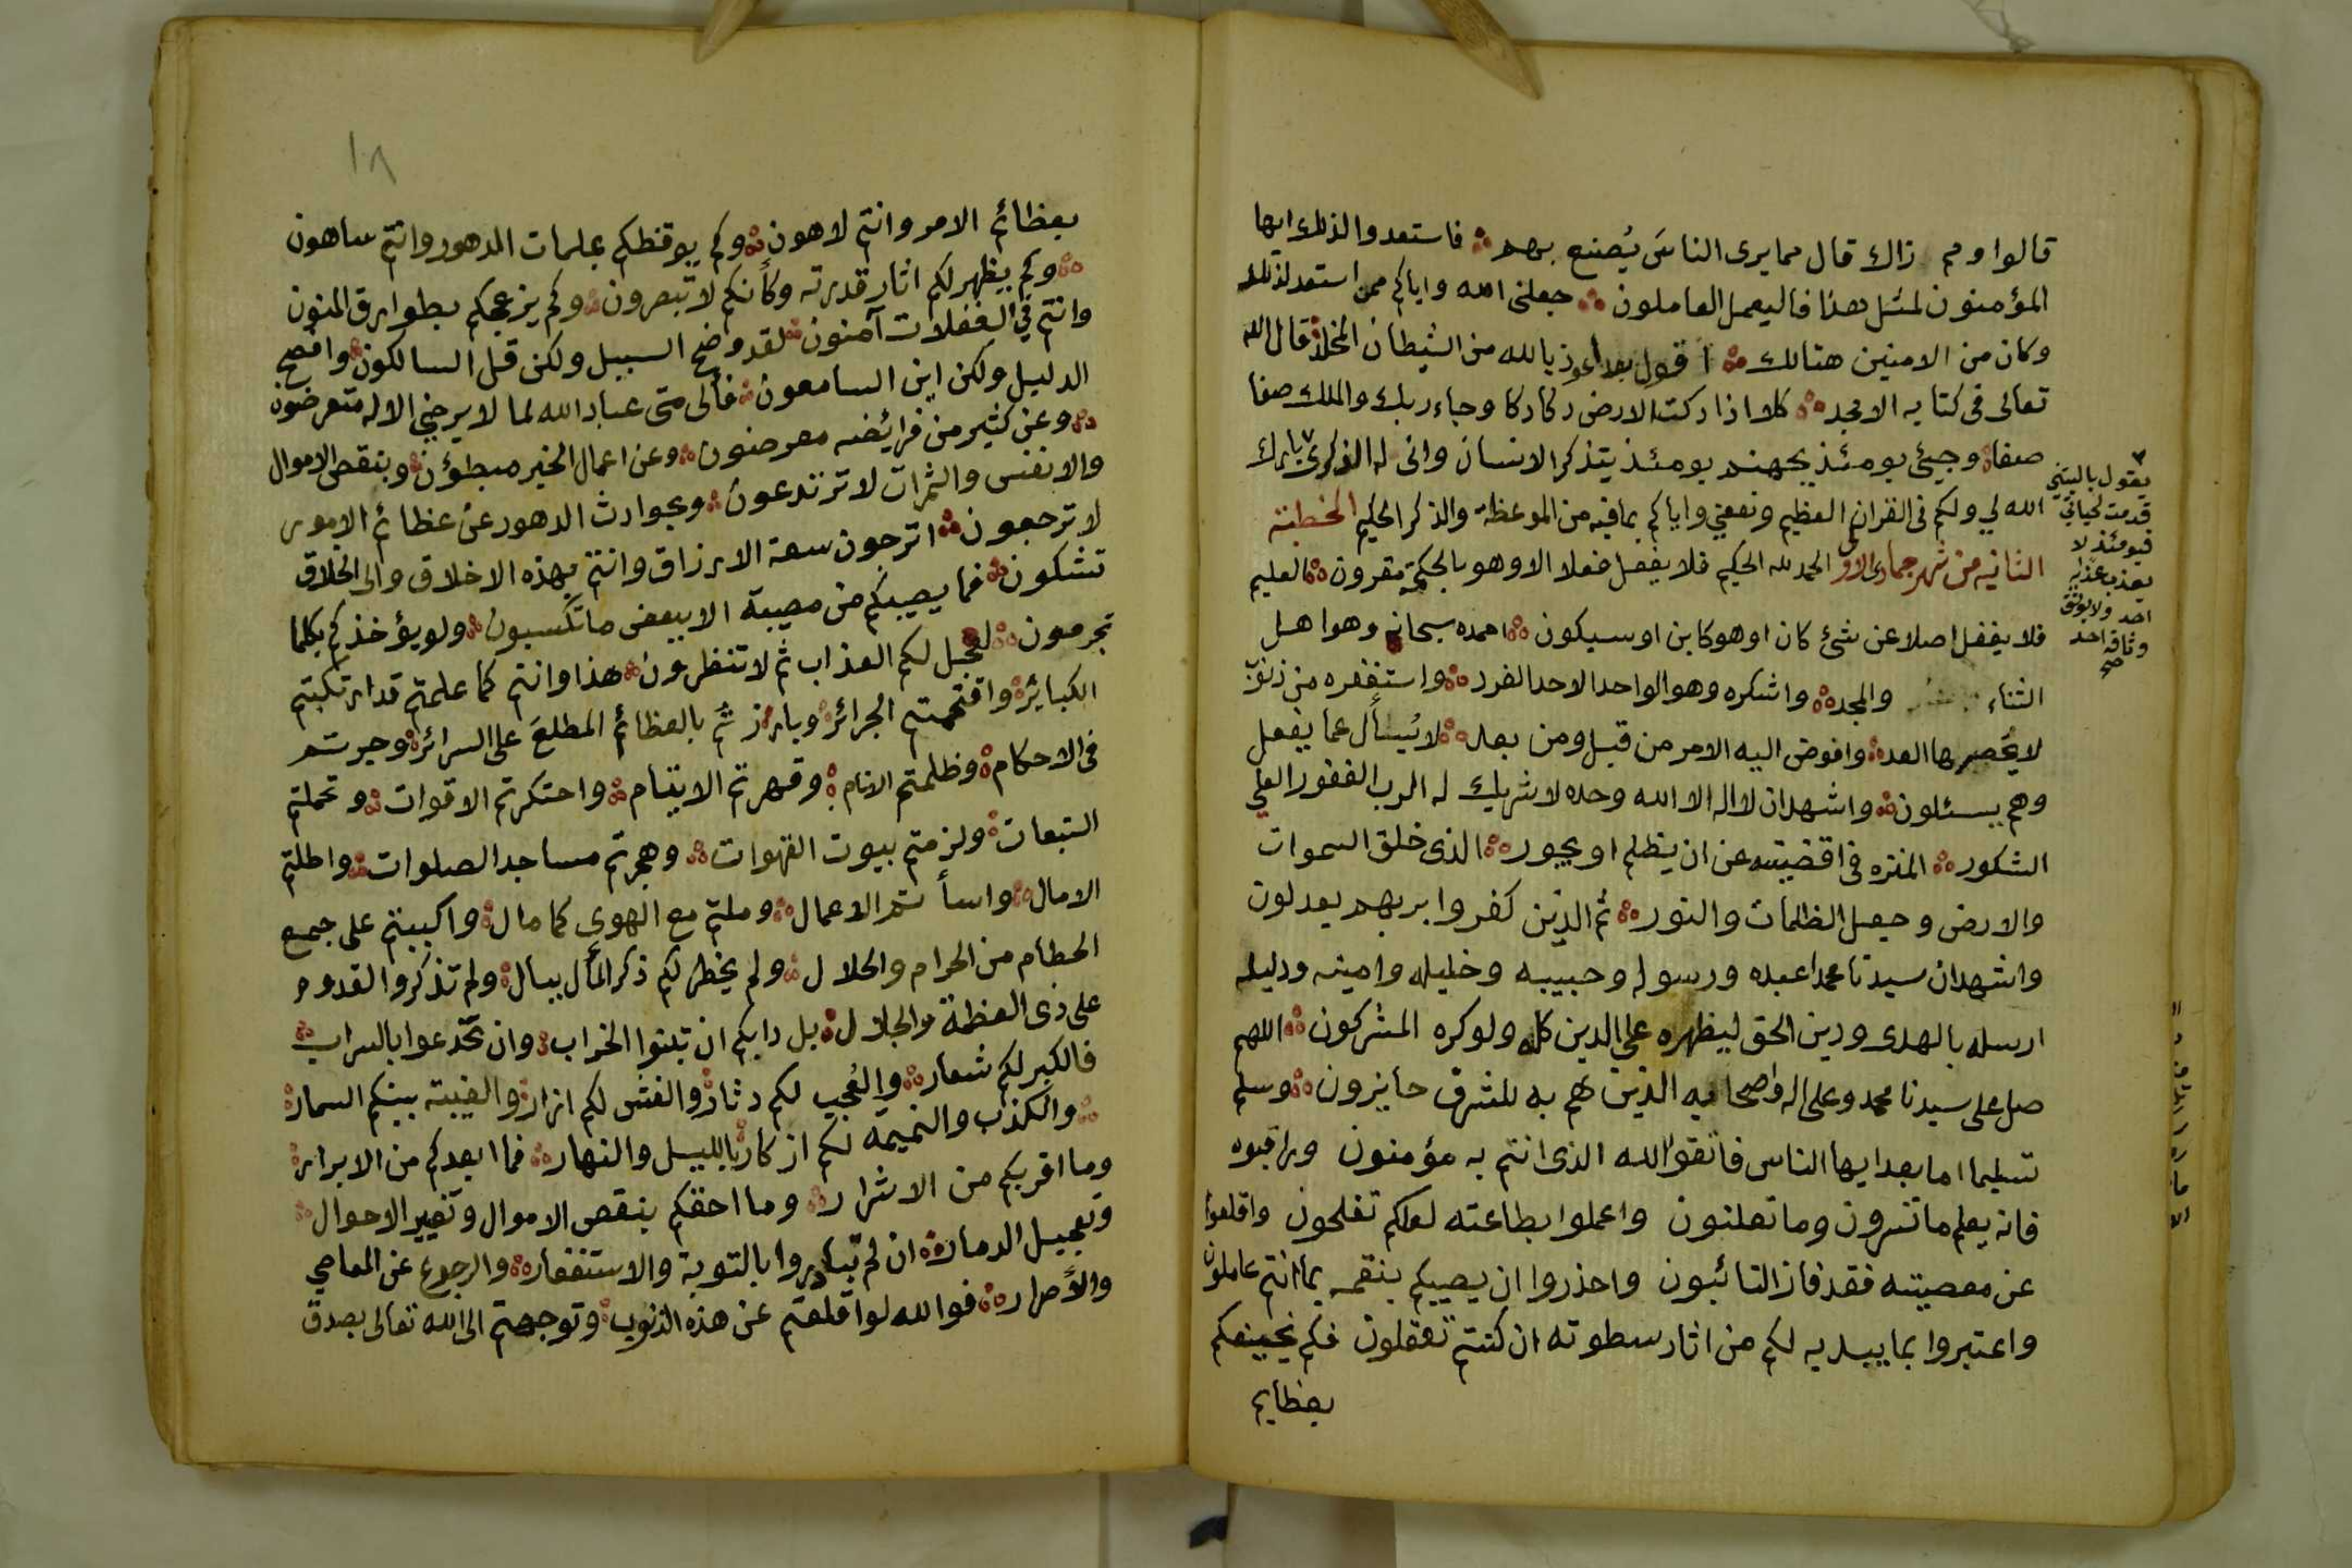 قالوا ومم ذاك قال مما يرى الناسَ يُصنع بهم ۞ فاستعدوا لذلك ايها
المؤمنون لمثل هذا فاليعمل العاملون ۞ جعلنى الله واياكم ممن استعد لذلك
وكان من الامنين هنالك ۞ اقول بعد اعوذ بالله من الشيطان قال الله
تعالى فى كتابه الامجد ۞ كلا اذا دكت الارض دكا دكا وجاء ربك والملك صفا
صفا ۞ وجيئ يومئذ بجهنم يومئذ يتذكر الانسان وانى له الذكرى بارك
الله لي ولكم فى القران العظيم ونفعني واياكم بما فيه من الموعظة والذكر الحكيم الخطبة
الثانيه من شهر جمادى الاولى الحمد لله الحكيم فلا يفعل فعلا الا وهو بالحكمة مقرون ۞ العليم
فلا يغفل اصلا عن شئ كان اوهو كاين او سيكون ۞ احمده سبحانه وهو اهل
الثناء والمجد ۞ واشكره وهو الواحد الاحد الفرد ۞ واستغفره من ذنوب
لا يُحصرها العد ۞ وافوض اليه الامر من قبل ومن بعد ۞ لا يُسأل عما يفعل
وهم يسئلون ۞ واشهد ان لا اله الا الله وحده لا شريك له الرب الغفور العلي
الشكور ۞ المنزه فى اقضيته عن ان يظلم او يجور ۞ الذى خلق السموات
والارض وجعل الظلمات والنور ۞ ثم الذين كفروا بربهم يعدلون
واشهد ان سيدنا محمدا عبده ورسوله وحبيبه وخليله وامينه ودليله
ارسله بالهدى ودين الحق ليظهره على الدين كله ولو كره المشركون ۞ اللهم
صل على سيدنا محمد وعلى اله واصحابه الذين هم به للشرف حايزون ۞ وسلم
تسليما اما بعد ايها الناس فاتقوا الله الذى انتم به مؤمنون وراقبوه
فانه يعلم ما تسرون وما تعلنون واعملوا بطاعته لعلكم تفلحون واقلعوا
عن معصيته فقد فاز التائبون واحذروا ان يصيبكم بنقمه بما انتم عاملون
واعتبروا بما يبديه لكم من اثار سطوته ان كنتم تعقلون فكم يخيفكم
بعظايم
يقول باليتني
قدمت لحياتي
فيومئذ لا
يعذب عذابه
احد ولا يوثق
وثاقه احد
صح
١٨
بعظائم الامر وانتم لاهون ۞ وكم يوقظكم بملمات الدهور وانتم ساهون
۞ وكم يظهر لكم اثار قدرته وكأنكم لا تبصرون ۞ وكم يزعجكم بطوارق المنون
وانتم في الغفلات آمنون ۞ لقد وضح السبيل ولكن قل السالكون ۞ وافصح
الدليل ولكن اين السامعون ۞ فألى متى عباد الله لما لا يرضي الاله متعرضون
۞ وعن كثير من فرائضه معرضون ۞ وعن اعمال الخير مبطؤن ۞ وبنقص الاموال
والانفس والثمرات لا ترتدعون ۞ وبحوادث الدهور عن عظائم الامور
لا ترجعون ۞ اترجون سعة الارزاق وانتم بهذه الاخلاق والى الخلاق
تشكون ۞ فما يصيبكم من مصيبة الا ببعض ما تكسبون ۞ ولو يؤخذكم بكلما
تجرمون ۞ لعجل لكم العذاب ثم لا تنظرون ۞ هذا وانتم كما علمتم قد ارتكبتم
الكبائر ۞ واقتحمتم الجرائر ۞ وبارزتم بالعظائم المطلعَ على السرائر ۞ وجرتم
فى الاحكام ۞ وظلمتم الانام ۞ وقهرتم الايتام ۞ واحتكرتم الاقوات ۞ وتحملتم
التبعات ۞ ولزمتم بيوت القهوات ۞ وهجرتم مساجد الصلوات ۞ واطلتم
الامال ۞ واسأتم الاعمال ۞ وملتم مع الهوى كما مال ۞ واكببتم على جمع
الحطام من الحرام والحلال ۞ ولم يخطر لكم ذكر المأل ببال ۞ ولم تذكروا القدوم
على ذى العظمة والجلال ۞ بل دابكم ان تبنوا الخراب ۞ وان تخدعوا بالسراب ۞
فالكبر لكم شعار ۞ والعُجب لكم دثار ۞ والغش لكم ازار ۞ والغيبة بينكم السمار ۞
۞ والكذب والنميمه لكم اذكار بالليل والنهار ۞ فما ابعدكم من الابرار ۞
وما اقربكم من الاشرار ۞ وما احقكم بنقص الاموال وتغيير الاحوال ۞
وتعجيل الدمار ۞ ان لم تبادروا بالتوبة والاستغفار ۞ والرجوع عن المعاصي
والأصرار ۞ فوالله لو اقلعتم عن هذه الذنوب ۞ وتوجهتم الى الله تعالى بصدق